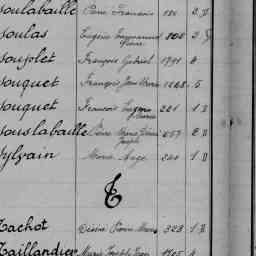 Soulabaille Pierre François 180 2 D
Soulas Eugène Emmanuel Pierre 200 2
Soujolet François Gabriel 1791 4
Souquet François Jean Marie 1248 5
Souquet François Eugène 221 1 D
Souslabaille Pierre Marie Joseph 1057 2 D
Sylvain Marie Ange 240 1 D
T
Tachot Désiré Pierre Marie 323 1 D
Taillandier Marie Joseph Jean 1705 4